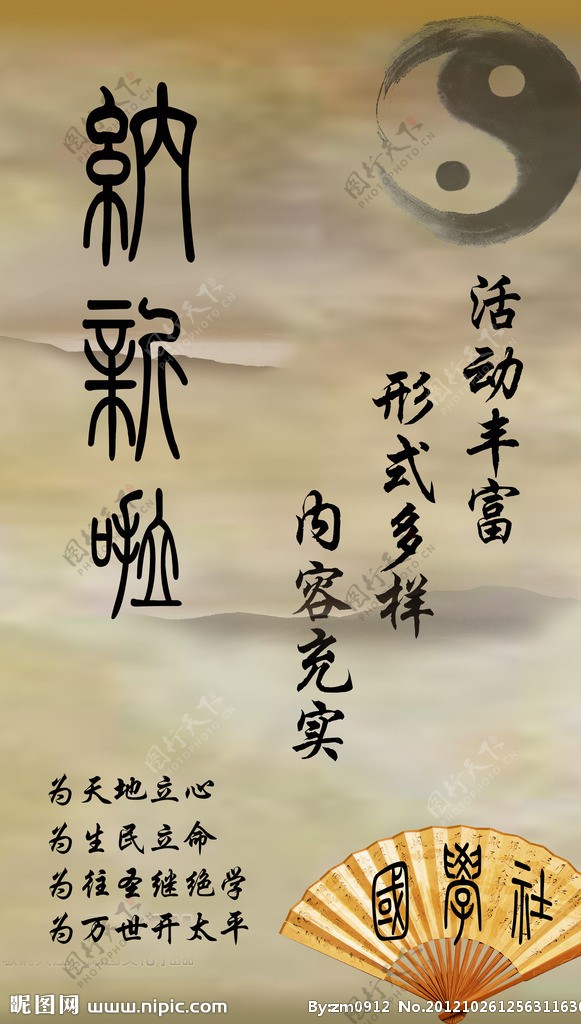 納新啦
活动丰富
形式多样
内容充实
为天地立心
为生民立命
为往圣继绝学
为万世开太平
國學社
图行天下 PHOTOPHOTO.CN
昵图网 www.nipic.com
By:zm0912 No.2012102612563116300